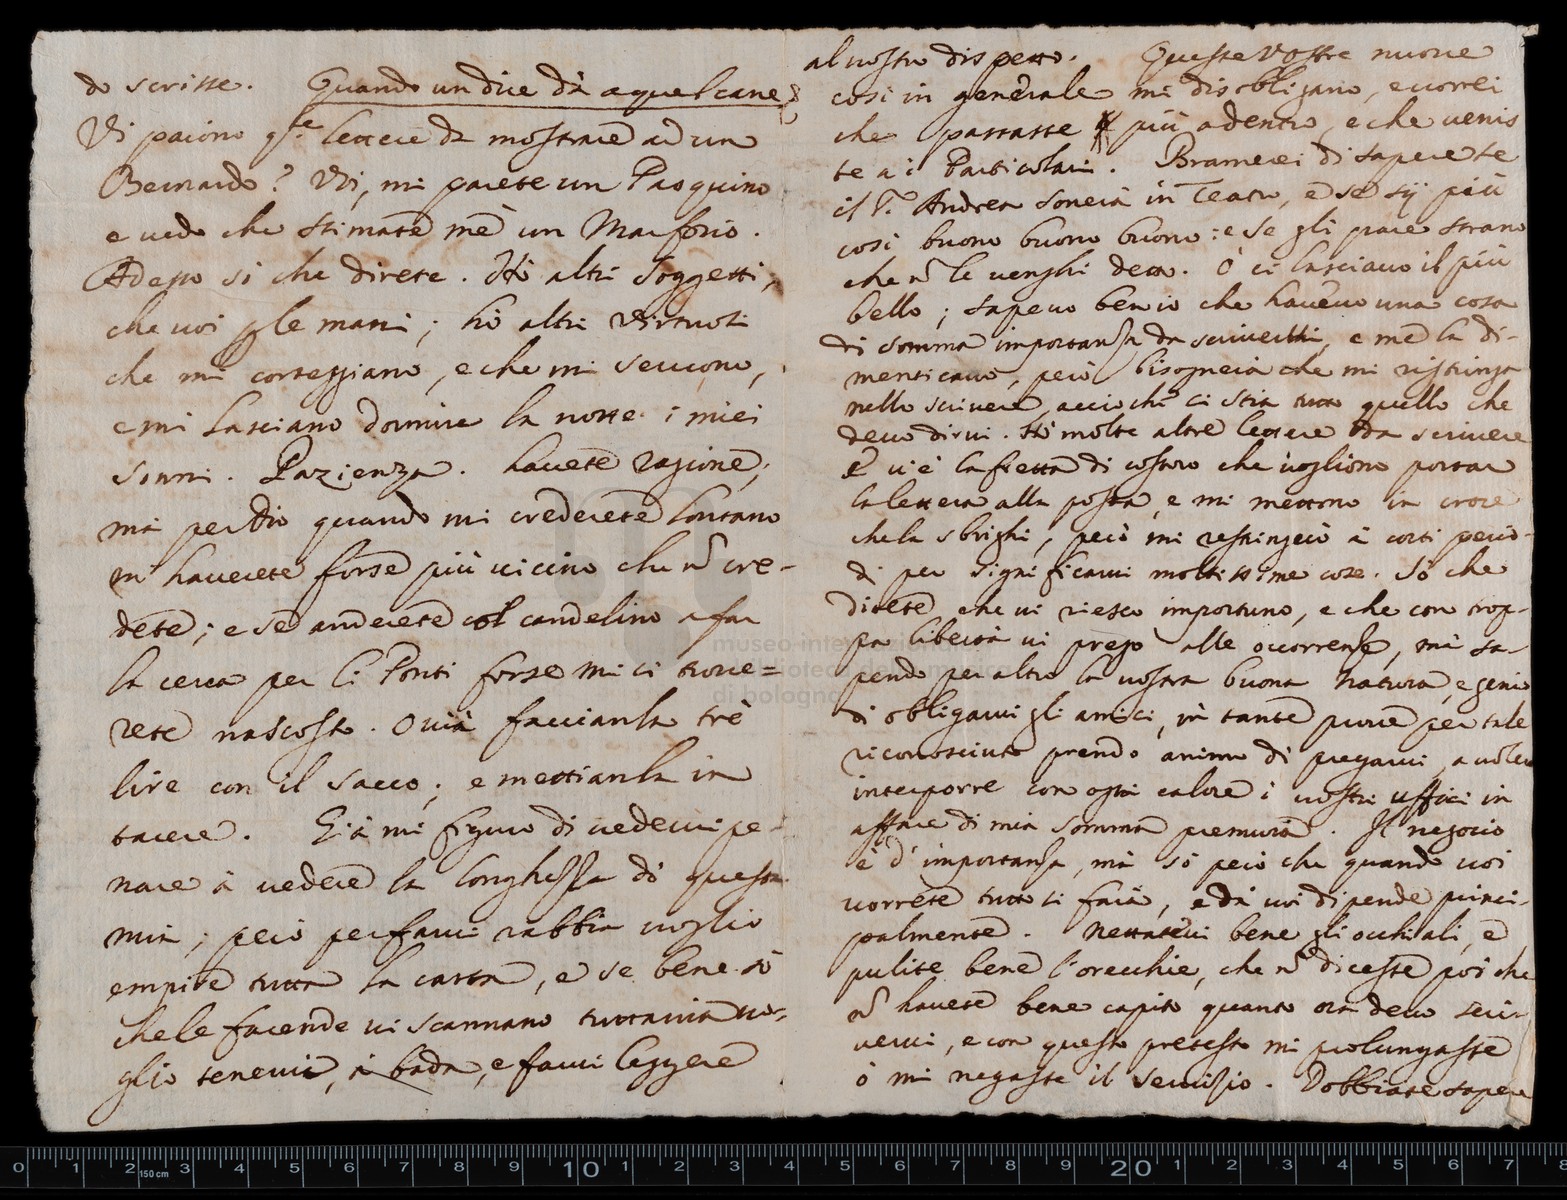 do scritte. Quando un dice dà a quel cane
Vi paiono q.ste lettere da mostrare ad un
Bernardo? Voi, mi parete un Pasquino
e vedo che stimate mè un Marforio.
Adesso si che direte. Hò altri soggetti,
che voi p le mani; hò altri Virtuosi
che mi corteggiano, e che mi servono,
e mi lasciano dormire la notte i miei
sonni. Pazienza. havete ragione;
mà per Dio quando mi crederete lontano
m'haverete forse più vicino che ñ cre-
dete; e se anderete col candelino a far
la cerca per li Ponti forse mi ci trove=
rete nascosto. Ovià facciamla trè
lire con il sacco; e mettiamla in
tacere. Già mi figuro di vedervi pe-
nare à vedere la longhezza di questa
mia; però per farvi rabbia voglio
empire tutta la carta, e se bene sò
che le facende vi scannano tuttavia vo-
glio tenervi, à bada, e farvi leggere
al vostro dispetto. Queste Vostre nuove
così in generale mi disobligano, e vorrei
che passaste più adentro, e che venis
te a i Particolari. Bramerei di sapere se
il S.r Andrea sonerà in Teatro, e se sij più
così buono buono buono: e se gli pare strano
che ñ le venghi detto. O ci lasciavo il più
bello; sapevo ben io che havevo una cosa
di somma importanza da scriverli, e me la di-
menticavo, però bisognerà che mi ristringa
nello scrivere, acciochè ci stia tutto quello che
devo dirvi. Hò molte altre lettere da scrivere
e vi è la fretta di costoro che vogliono portar
la lettera alla posta, e mi mettono in croce
che la sbrighi, però mi restringerò à corti perio-
di per significarvi moltissime cose. Sò che
direte, che vi riesco importuno, e che con trop-
pa libertà vi prego alle occorrenze, mà sa-
pendo per altro la vostra buona natura, e genio
di obligarvi gli amici, in tante prove per tale
riconosciuto prendo animo di pregarvi, a voler
interporre con ogni calore i vostri uffici in
affare di mia somma premura. Il negocio
è d'importanza, mà sò però che quando voi
vorrete tutto si farà, e dà voi dipende princi-
palmente. Nettatevi bene gli occhiali, e
pulite bene l'orecchie, che ñ diceste poi che
ñ havete bene capito quanto ora devo scri-
vervi, e con questo pretesto mi prolungaste
ò mi negaste il servizio. Dobbiate sapere
museo internazionale
e biblioteca della musica
di bologna